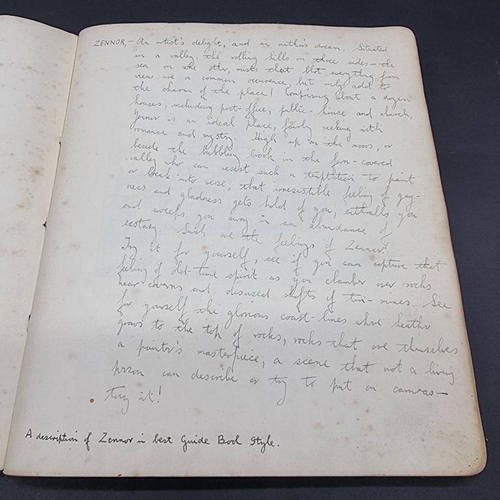 ZENNOR, – An artist's delight, and an author's dream. Situated
in a valley, the rolling hills on three sides – the
sea on the other, mists that blot everything from
view are a common occurence, but only add to
the charm of the place! Comprising about a dozen
houses, including post-office, public-house and church,
Zennor is an ideal place, fairly reeking with
romance and mystery. High up on the moors, or
beside the bubbling brook in the fern-covered
valley who can resist such a temptation to paint
or break into verse, that irresistible feeling of gay-
ness and gladness gets hold of you, enthralls you
and sweeps you away in an abundance of
ecstasy. Such are the feelings of Zennor!
Try it for yourself, see if you can capture that
feeling of old-time spirit as you clamber over rocks
near caverns and disused shafts of tin-mines. See
for yourself the glorious coast-lines where heather
grows to the top of rocks, rocks that are themselves
a painter's masterpiece, a scene that not a living
person can describe or try to put on canvas –
Try it!
A description of Zennor in best Guide Book Style.